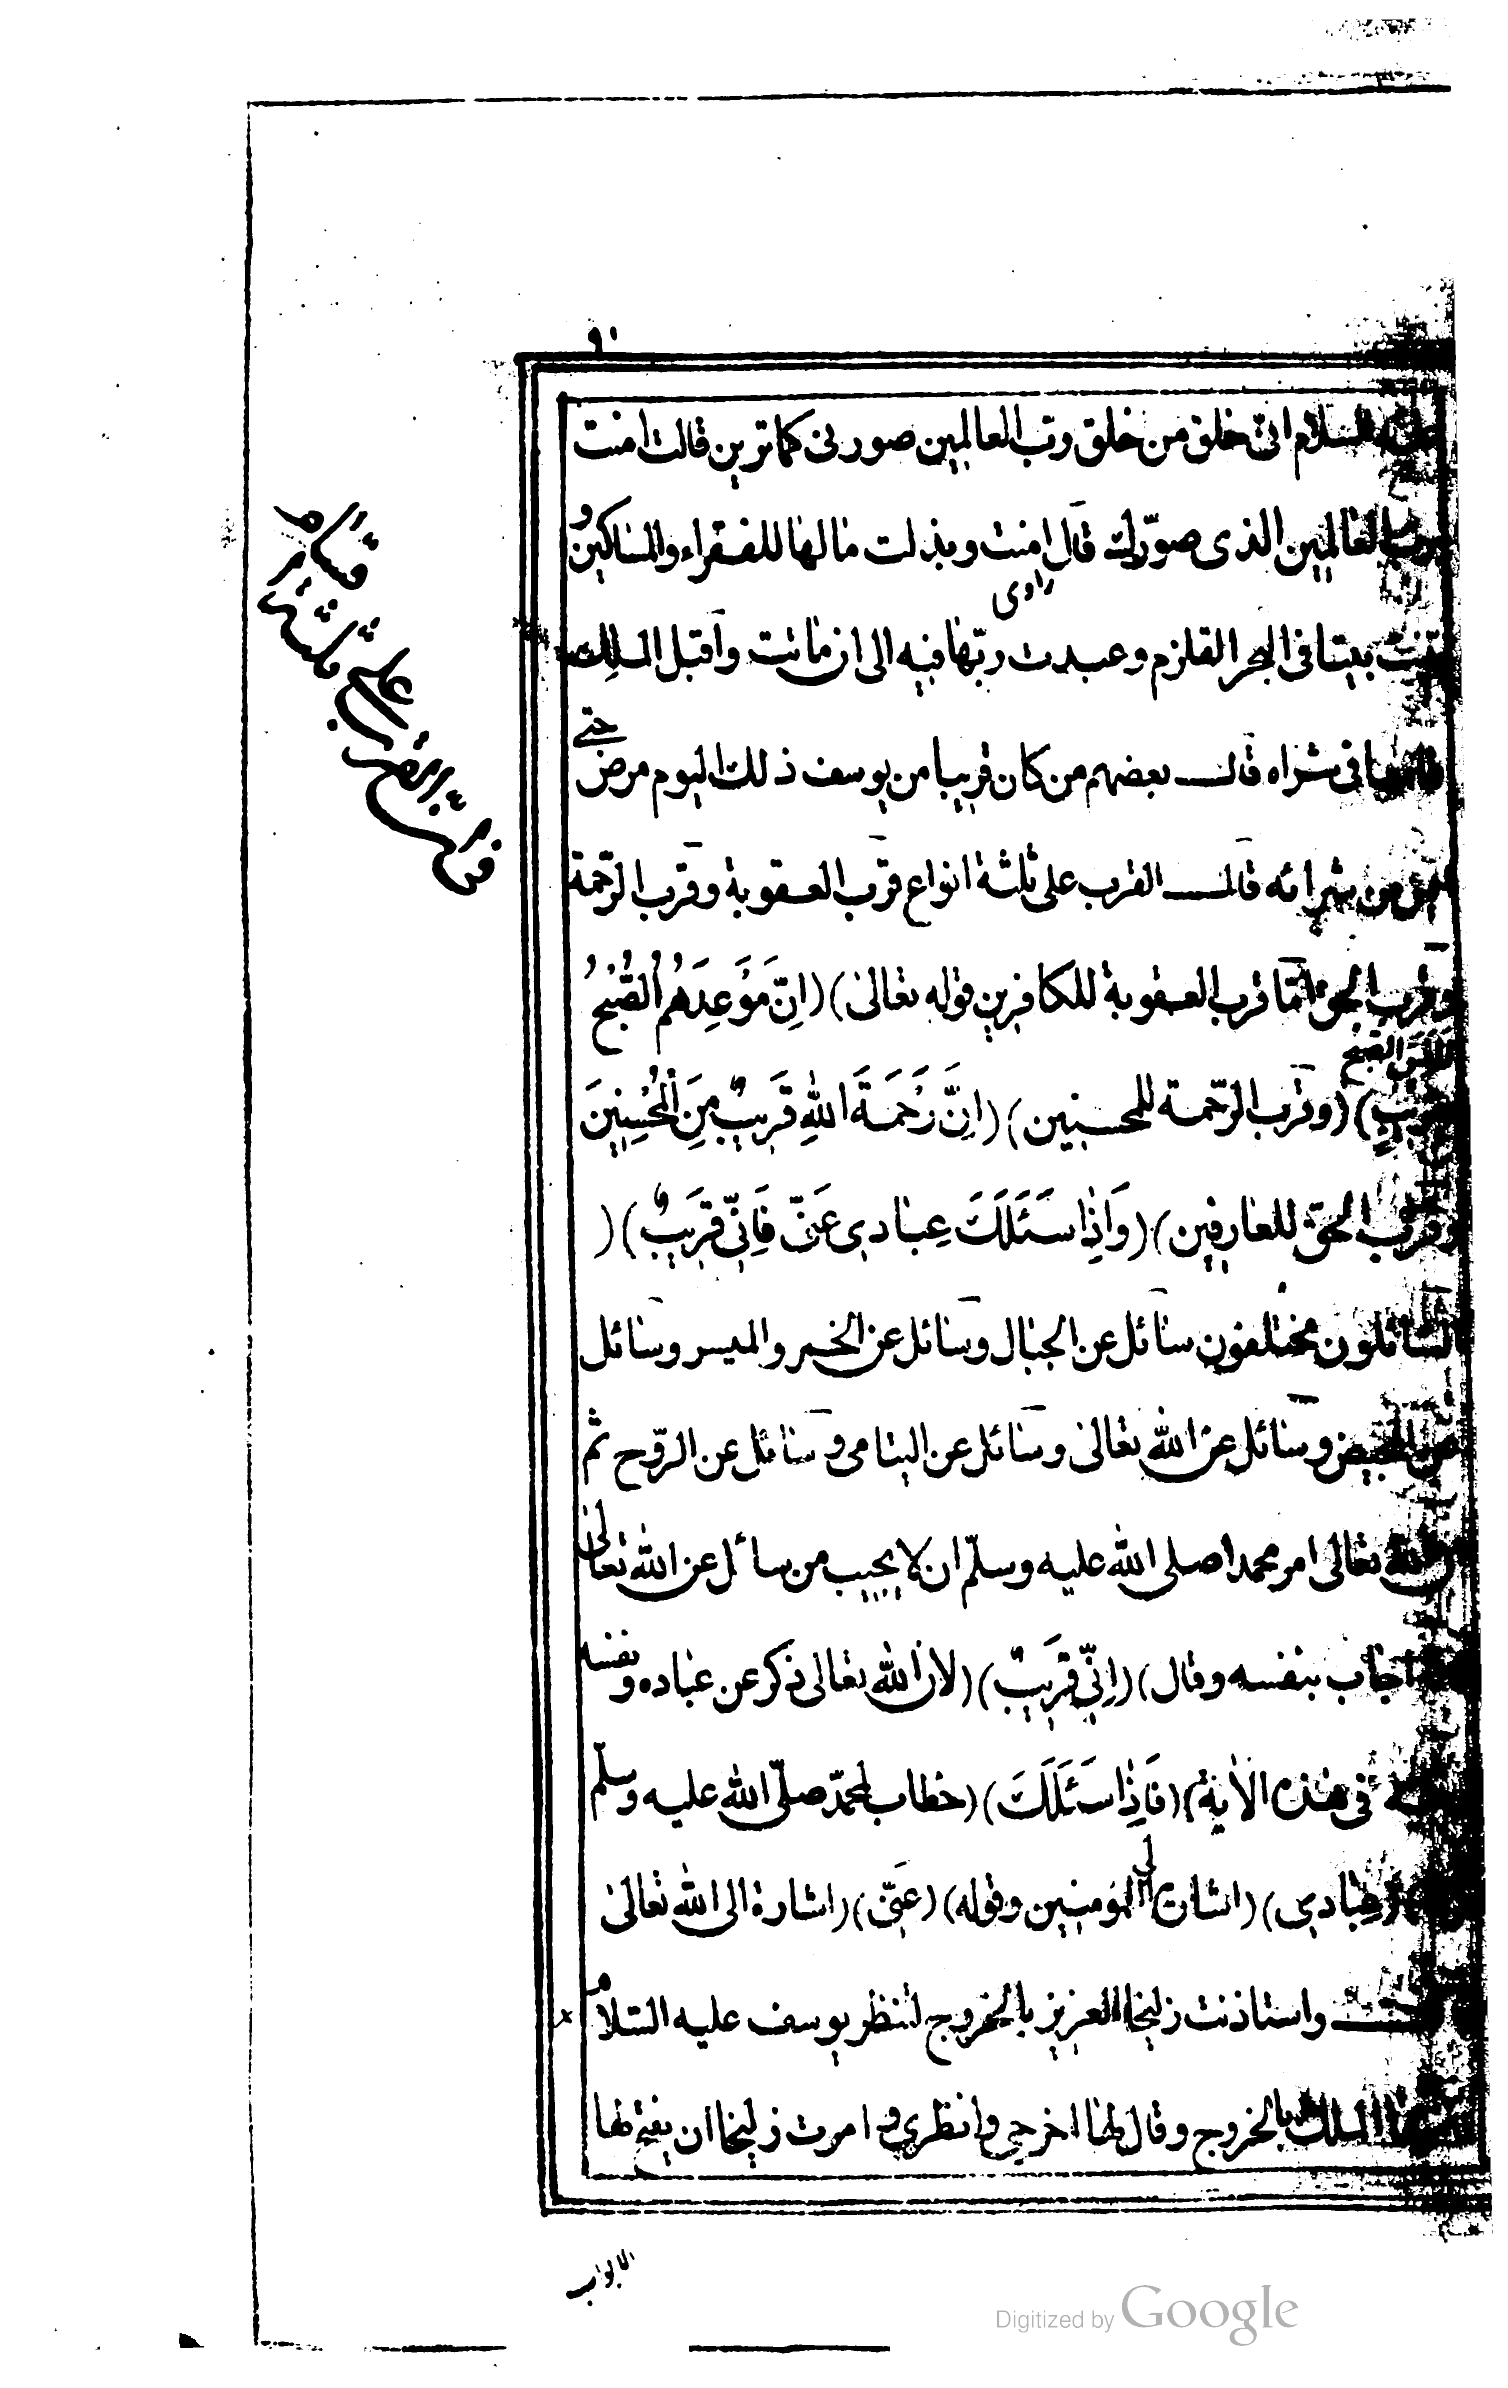 ٩٠
عليه السلام انى خلق من خلق ورب العالمين صورنى كما ترين قالت امنت
برب العالمين الذى صوّرك قال امنت وبذلت مالها للفقراء والمساكين و
بنت بيتا فى البحر القلزم وعبدت ربها فيه الى ان ماتت واقبل الملك
راوى
فى شراه قال بعضهم من كان قريبا من يوسف ذلك اليوم مرض حتى
من شرائه قال القرب على ثلثة انواع قرب العقوبة وقرب الرّحمة
وقرب الحق امّا قرب العقوبة للكافرين قوله تعالى) (اِنَّ مَوْعِدَهُمُ الصُّبْحُ
اَلَيْسَ الصبح
بقريب) (وقرب الرّحمة للمحسنين) (اِنَّ رَحْمَةَ اللهِ قَرِيبٌ مِنَ الْمُحْسِنِينَ
وقرب الحقّ للعارفين) (وَاِذَا سَئَلَكَ عِبَادِى عَنّى فَاِنّى قَرِيبٌ) (
السائلون مختلفون سائل عن الجبال وسائل عن الخمر والميسر وسائل
عن المحيض وسائل عن الله تعالى وسائل عن اليتامى وسائل عن الرّوح ثم
الله تعالى امر محمدا صلى الله عليه وسلّم ان لا يجيب من سائل عن الله تعالى
اجاب بنفسه وقال) (اِنّى قَرِيبٌ) (لان الله تعالى ذكر عن عباده ونفسه
فى هذه الاية) (فَاِذَا سَئَلَكَ) (خطاب لمحمّد صلّى الله عليه وسلّم
عِبَادِى) (اشارة الى المؤمنين وقوله) (عَنّى) (اشارة الى الله تعالى
واستاذنت زليخا العزيز بالخروج لتنظر يوسف عليه السلام
الملك بالخروج وقال لها اخرجى وانظرى و امرت زليخا ان يفتح لها
الابواب